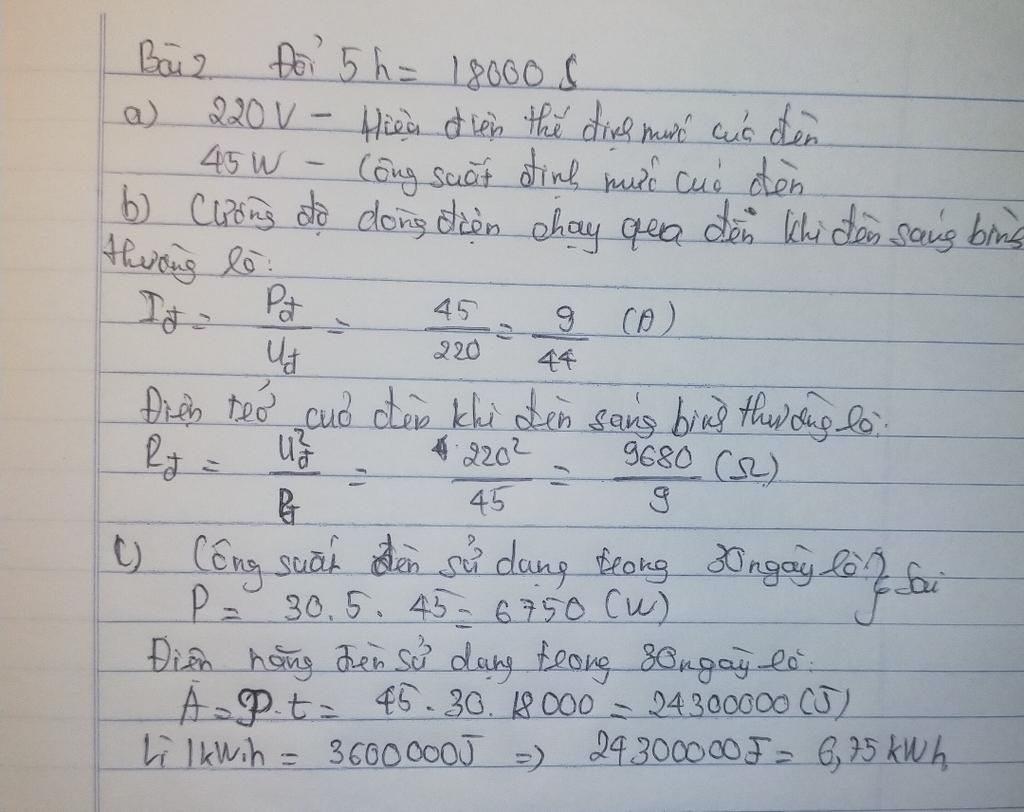 Bài 2. Đổi 5h = 18000 s
a) 220V - Hiệu điện thế định mức của đèn
45W - Công suất định mức của đèn
b) Cường độ dòng điện chạy qua đèn khi đèn sáng bình
thường là:
Iđ = Pđ/Uđ = 45/220 = 9/44 (A)
Điện trở của đèn khi đèn sáng bình thường là:
Rđ = Uđ²/Pđ = 220²/45 = 9680/9 (Ω)
c) Công suất đèn sử dụng trong 30 ngày là: } Sai
P = 30.5.45 = 6750 (W)
Điện năng đèn sử dụng trong 30 ngày là:
A = P.t = 45.30.18000 = 24300000 (J)
Vì 1kW.h = 3600000J => 24300000J = 6,75 kWh